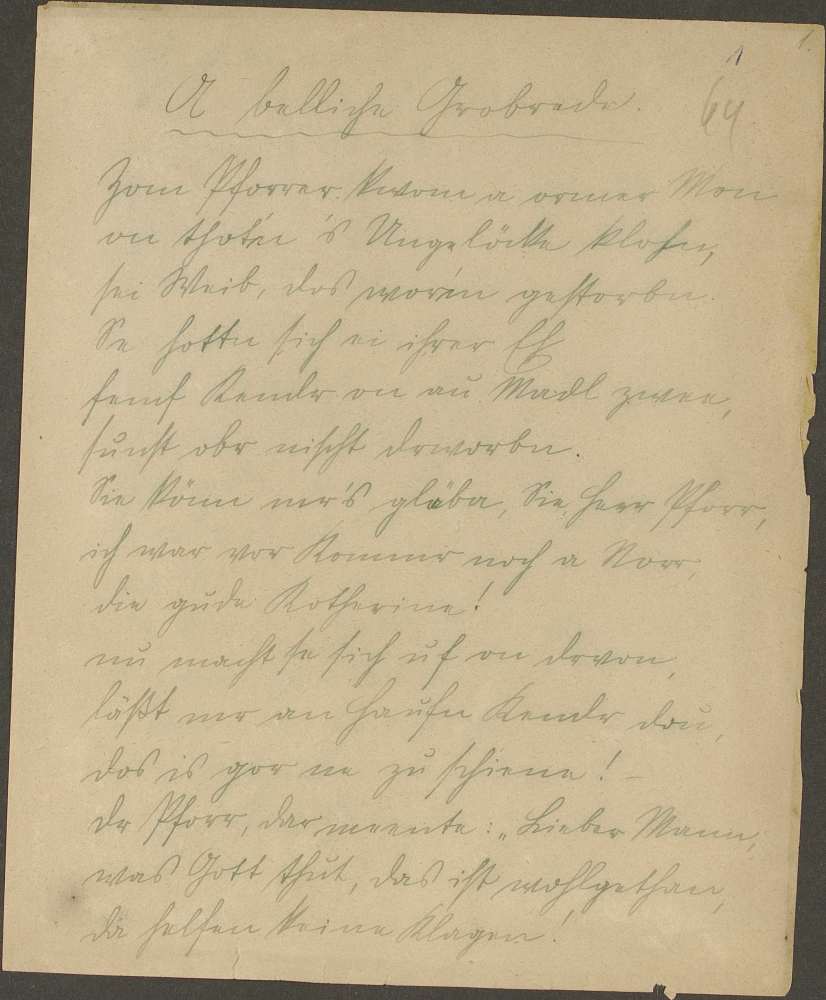 1.
1
64
A belliche Grobrede.
Zom Pforrer kwom a ormer Mon
on thot'n 's Ungelöcke klohn,
sei Weib, dos wor'n gestorbn.
Se hottn sich ei ihrer Eh
femf Kendr on au Madl zwee,
sunst obr nischt drworbn.
Sie könn mr's gläba, Sie, Herr Pforr,
ich war vor Kommr noch a Norr,
die gude Kotherine!
nu macht se sich uf on drvon,
läßt mr an Haufn Kendr dou,
dos is gor ne zu schiene! –
Dr Pforr, dar meente: „Lieber Mann,
was Gott thut, das ist wohlgethan,
da helfen keine Klagen!